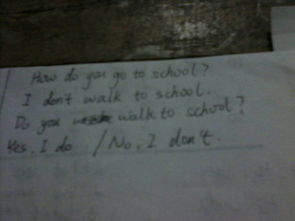 How do you go to school?
I don't walk to school.
Do you walk to school?
Yes, I do / No, I don't.